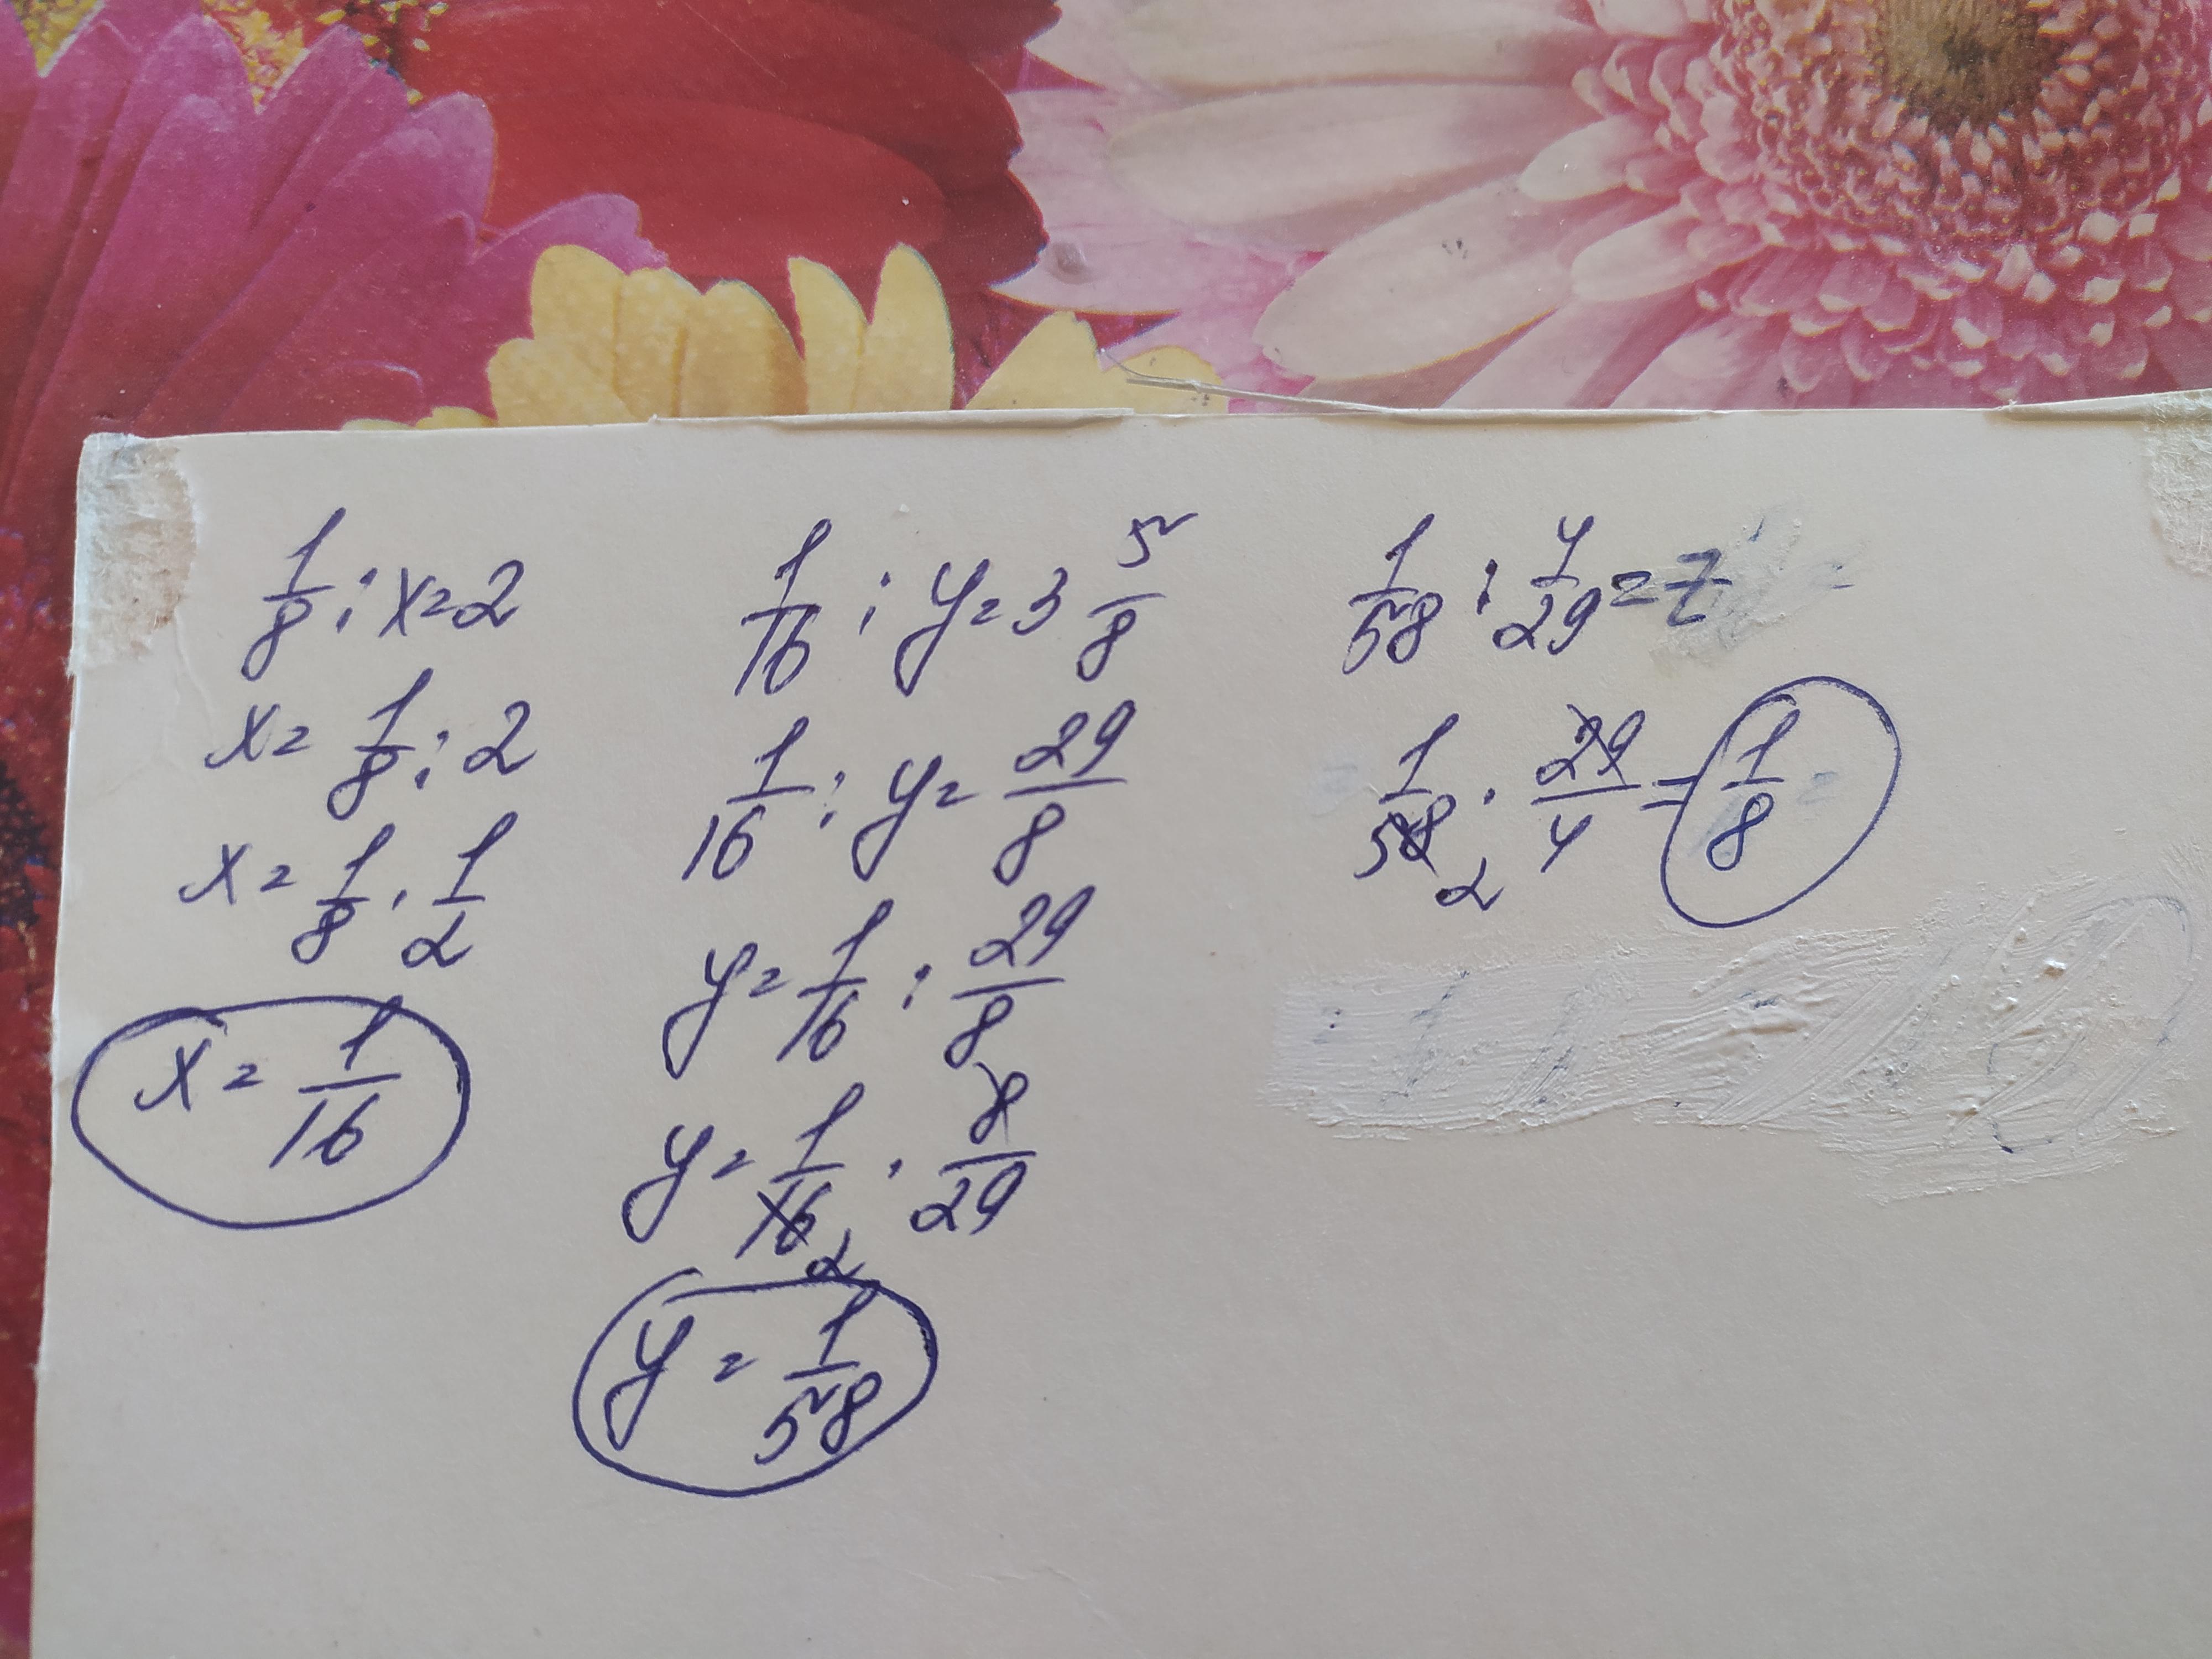 1/8 : x = 2
x = 1/8 : 2
x = 1/8 · 1/2
x = 1/16
1/16 : y = 3 5/8
1/16 : y = 29/8
y = 1/16 : 29/8
y = 1/16 2 · 8/29
y = 1/58
1/58 : 4/29 = z
1/58 2 · 29/4 = 1/8